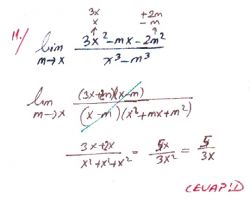 11./ lim m→x 3x² - mx - 2m² / x³ - m³
3x +2m
x - m
lim m→x (3x+2m)(x-m) / (x-m)(x²+mx+m²)
3x+2x / x²+x²+x² = 5x / 3x² = 5 / 3x
CEVAP:D